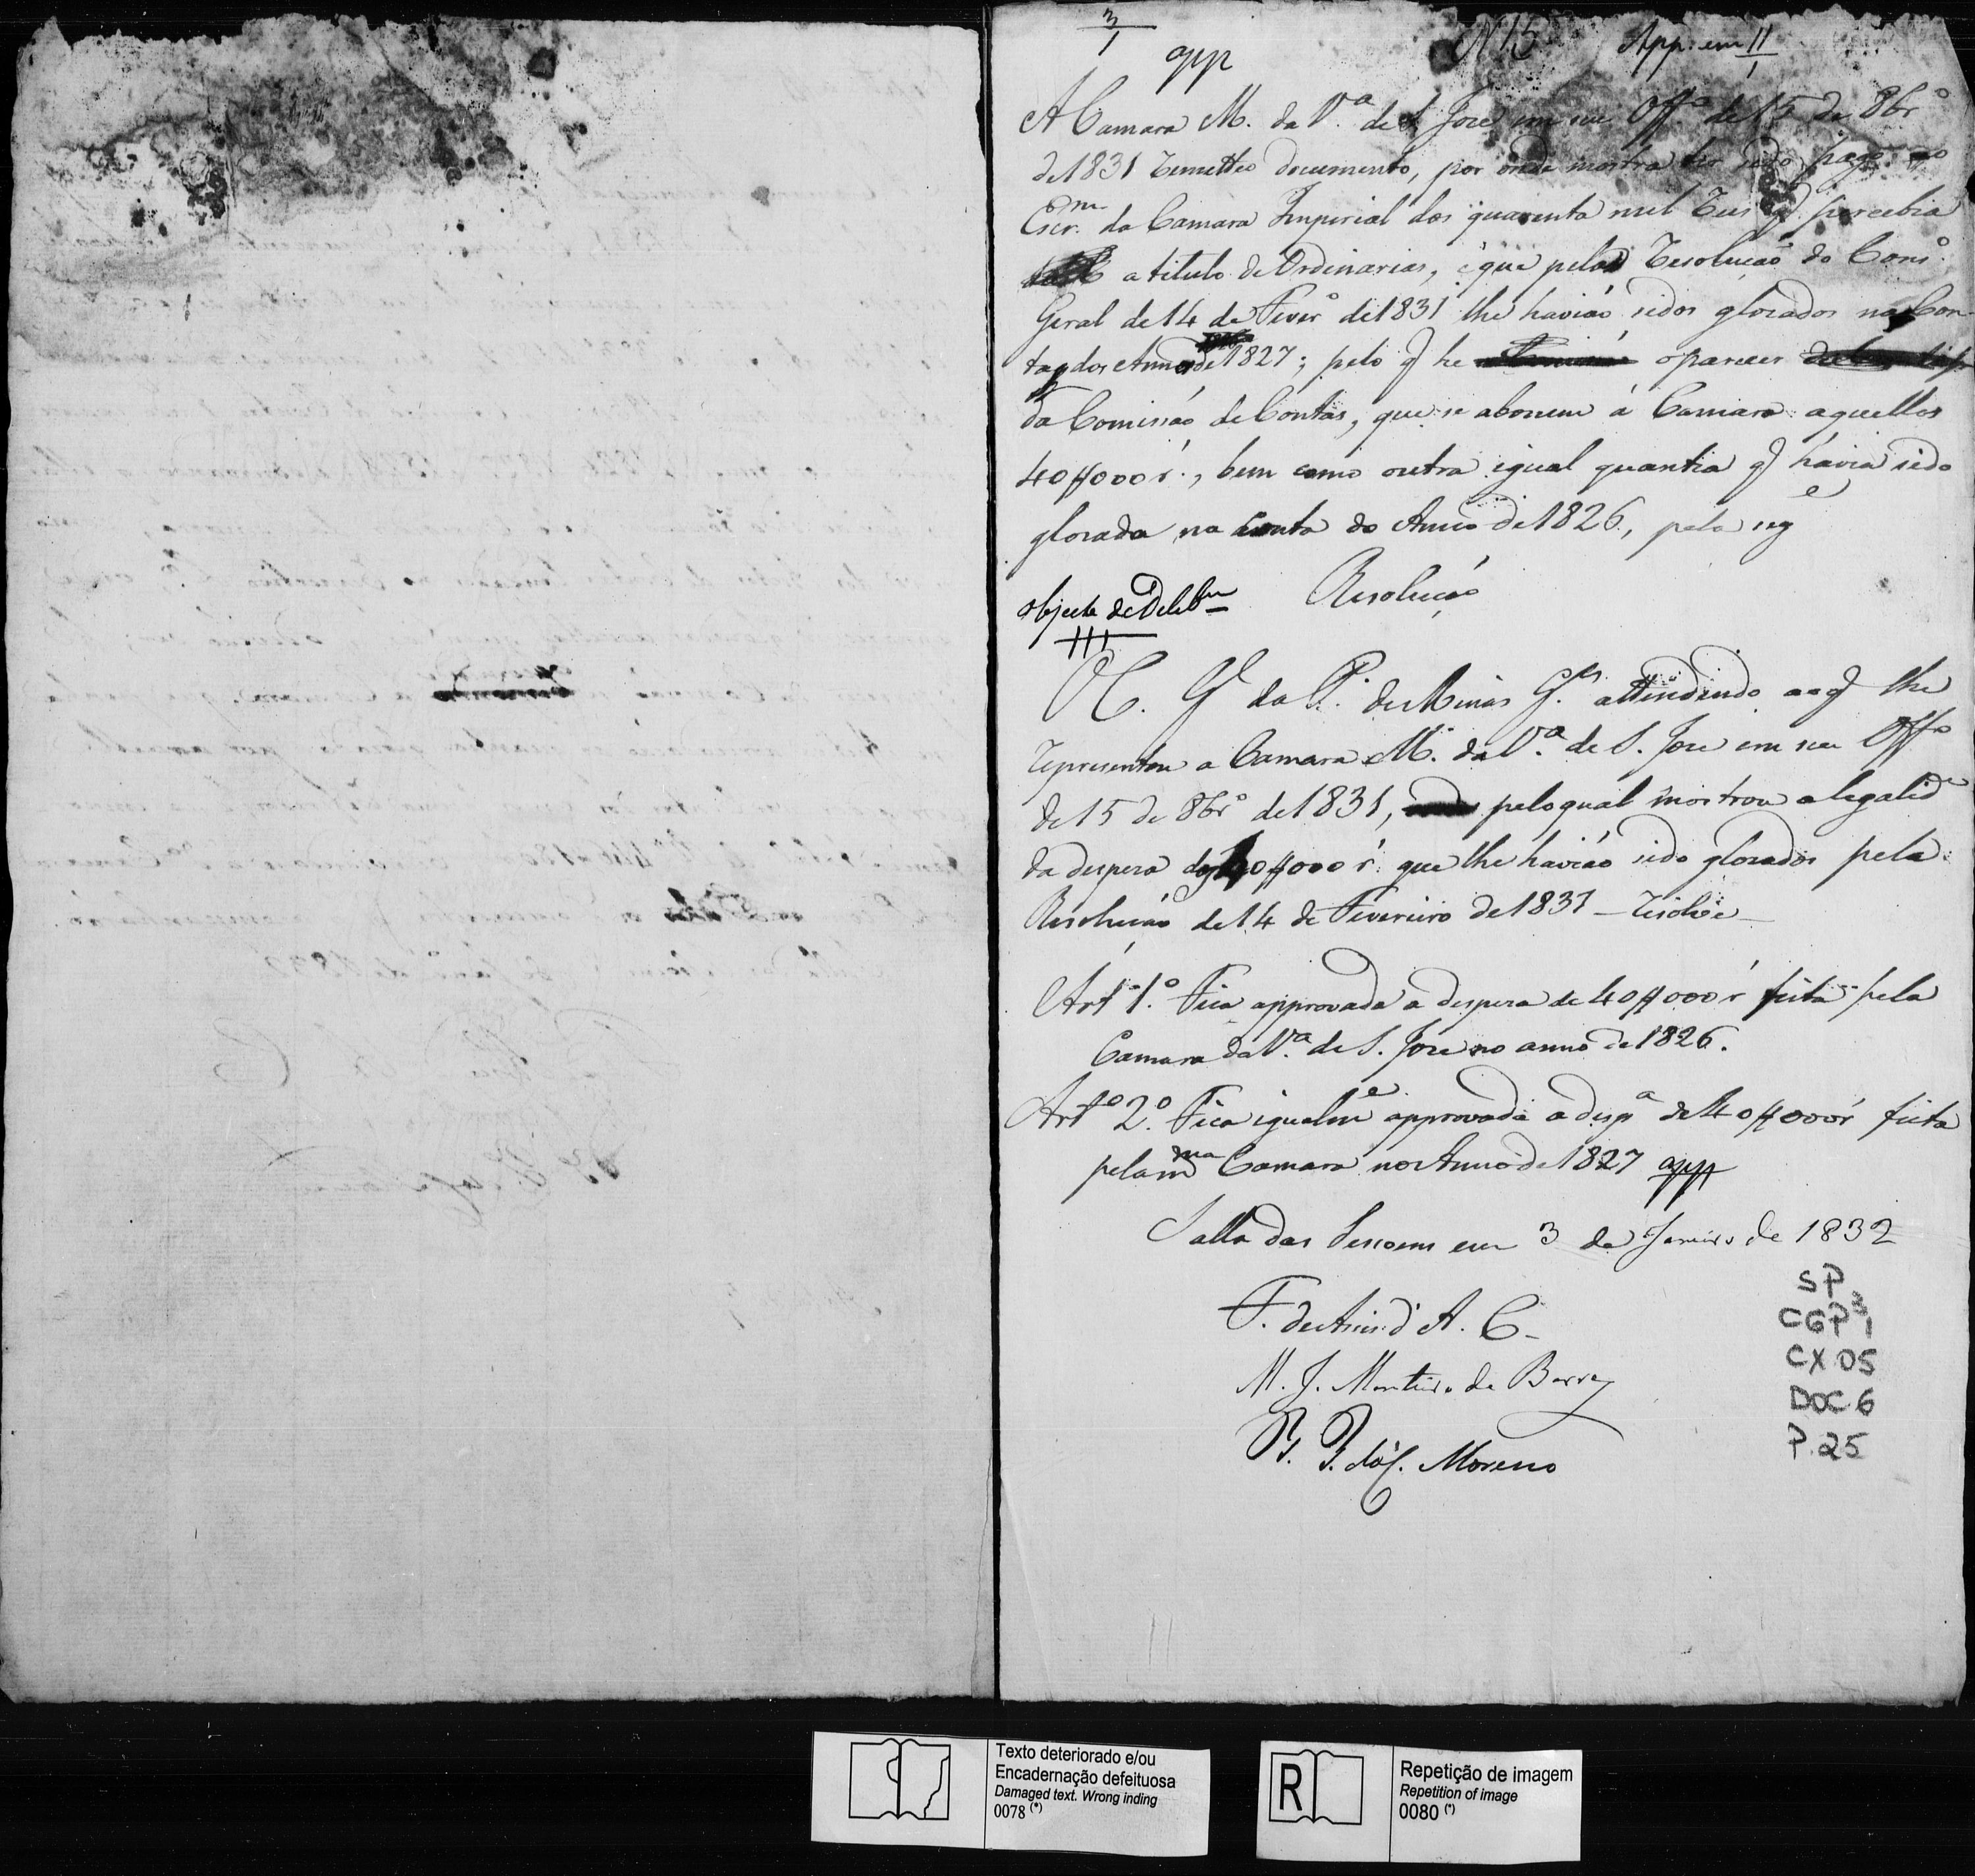 3/1
app
N 15
App. em 11/1
A Camara M. da V.ª de S. Jose em seu Off.º de 15 de 8br.º
de 1831 remetteo documento, por onde mostra ter sido pago ao
Escr.m da Camara Imperial dos quarenta mil reis q̃ percebia
a titulo de Ordinarias, e que pela Resolução do Cons.º
Geral de 14 de Fever.º de 1831 lhe havião sidos glozados na Con-
ta dos Annos de 1827; pelo q̃ he o parecer
da Comissão de Contas, que se abonem á Camara aquellos
40$000 r.s, bem como outra igual quantia q̃ havia sido
glosada na conta do Anno de 1826, pela seg.e
objecto de Delib.m
Resolução
O C. G. da P. de Minas G.es attendendo ao q̃ lhe
representou a Camara M. da V.ª de S. Jose em seu Off.º
de 15 de 8br.º de 1831, pelo qual mostrou a legalid.e
da despesa dos 40$000 r. que lhe havião sido glosados pela
Resolução de 14 de Fevereiro de 1831 — Resolve —
Art.º 1.º Fica approvada a despesa de 40$000 r feita pela
Camara da V.ª de S. Jose no anno de 1826.
Art.º 2.º Fica igualm.e approvada a desp.ª de 40$000 r feita
pela m.ma Camara no Anno de 1827 app
Salla das Sessoens em 3 de Janeiro de 1832
F. de Assis d' A. C.
M. J. Monteiro de Barros
J. de C. Moreno
SP
CGP3 1
CX 05
DOC 6
P. 25
Texto deteriorado e/ou
Encadernação defeituosa
Damaged text. Wrong inding
0078 (*)
R
Repetição de imagem
Repetition of image
0080 (*)